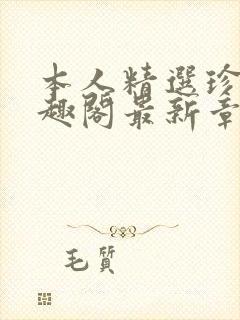 本人精選珍
趣閣最新章
毛質